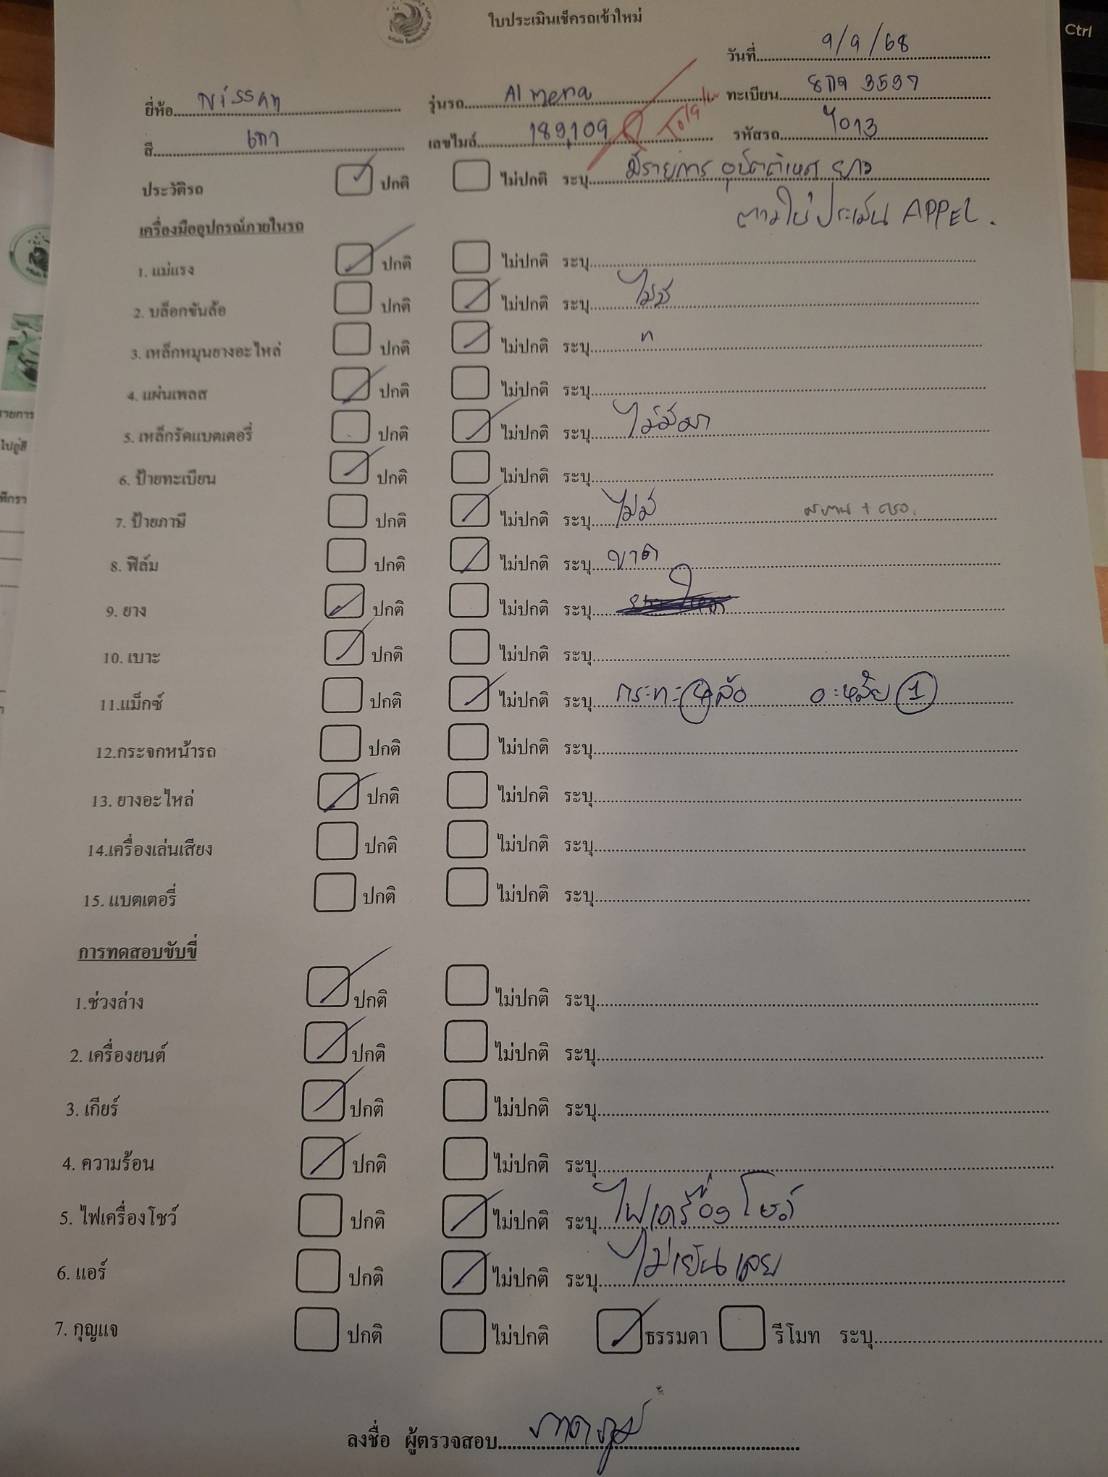 ใบประเมินเช็ครถเข้าใหม่
วันที่ 9/9/68
ยี่ห้อ Nissan รุ่นรถ Almera ทะเบียน 3537
สี เทา เลขไมล์ 189,109 รหัสรถ 7013
ประวัติรถ ปกติ ไม่ปกติ ระบุ มีรายการ อุบัติเหตุ
ตามใบประเมิน APPEL.
เครื่องมืออุปกรณ์ภายในรถ
1. แม่แรง ปกติ ไม่ปกติ ระบุ
2. บล็อกขันล้อ ปกติ ไม่ปกติ ระบุ ไม่มี
3. เหล็กหมุนยางอะไหล่ ปกติ ไม่ปกติ ระบุ "
4. แผ่นเพลส ปกติ ไม่ปกติ ระบุ
5. เหล็กรัดแบตเตอรี่ ปกติ ไม่ปกติ ระบุ ไม่มีมา
6. ป้ายทะเบียน ปกติ ไม่ปกติ ระบุ
7. ป้ายภาษี ปกติ ไม่ปกติ ระบุ ไม่มี
8. ฟิล์ม ปกติ ไม่ปกติ ระบุ ขาด
9. ยาง ปกติ ไม่ปกติ ระบุ
10. เบาะ ปกติ ไม่ปกติ ระบุ
11.แม็กซ์ ปกติ ไม่ปกติ ระบุ กระทะ 4 ล้อ อะหลั่ย 1
12.กระจกหน้ารถ ปกติ ไม่ปกติ ระบุ
13. ยางอะไหล่ ปกติ ไม่ปกติ ระบุ
14.เครื่องเล่นเสียง ปกติ ไม่ปกติ ระบุ
15. แบตเตอรี่ ปกติ ไม่ปกติ ระบุ
การทดสอบขับขี่
1.ช่วงล่าง ปกติ ไม่ปกติ ระบุ
2. เครื่องยนต์ ปกติ ไม่ปกติ ระบุ
3. เกียร์ ปกติ ไม่ปกติ ระบุ
4. ความร้อน ปกติ ไม่ปกติ ระบุ
5. ไฟเครื่องโชว์ ปกติ ไม่ปกติ ระบุ ไฟเครื่องโชว์
6. แอร์ ปกติ ไม่ปกติ ระบุ ไม่เย็นเลย
7. กุญแจ ปกติ ไม่ปกติ ธรรมดา รีโมท ระบุ
ลงชื่อ ผู้ตรวจสอบ
Ctrl